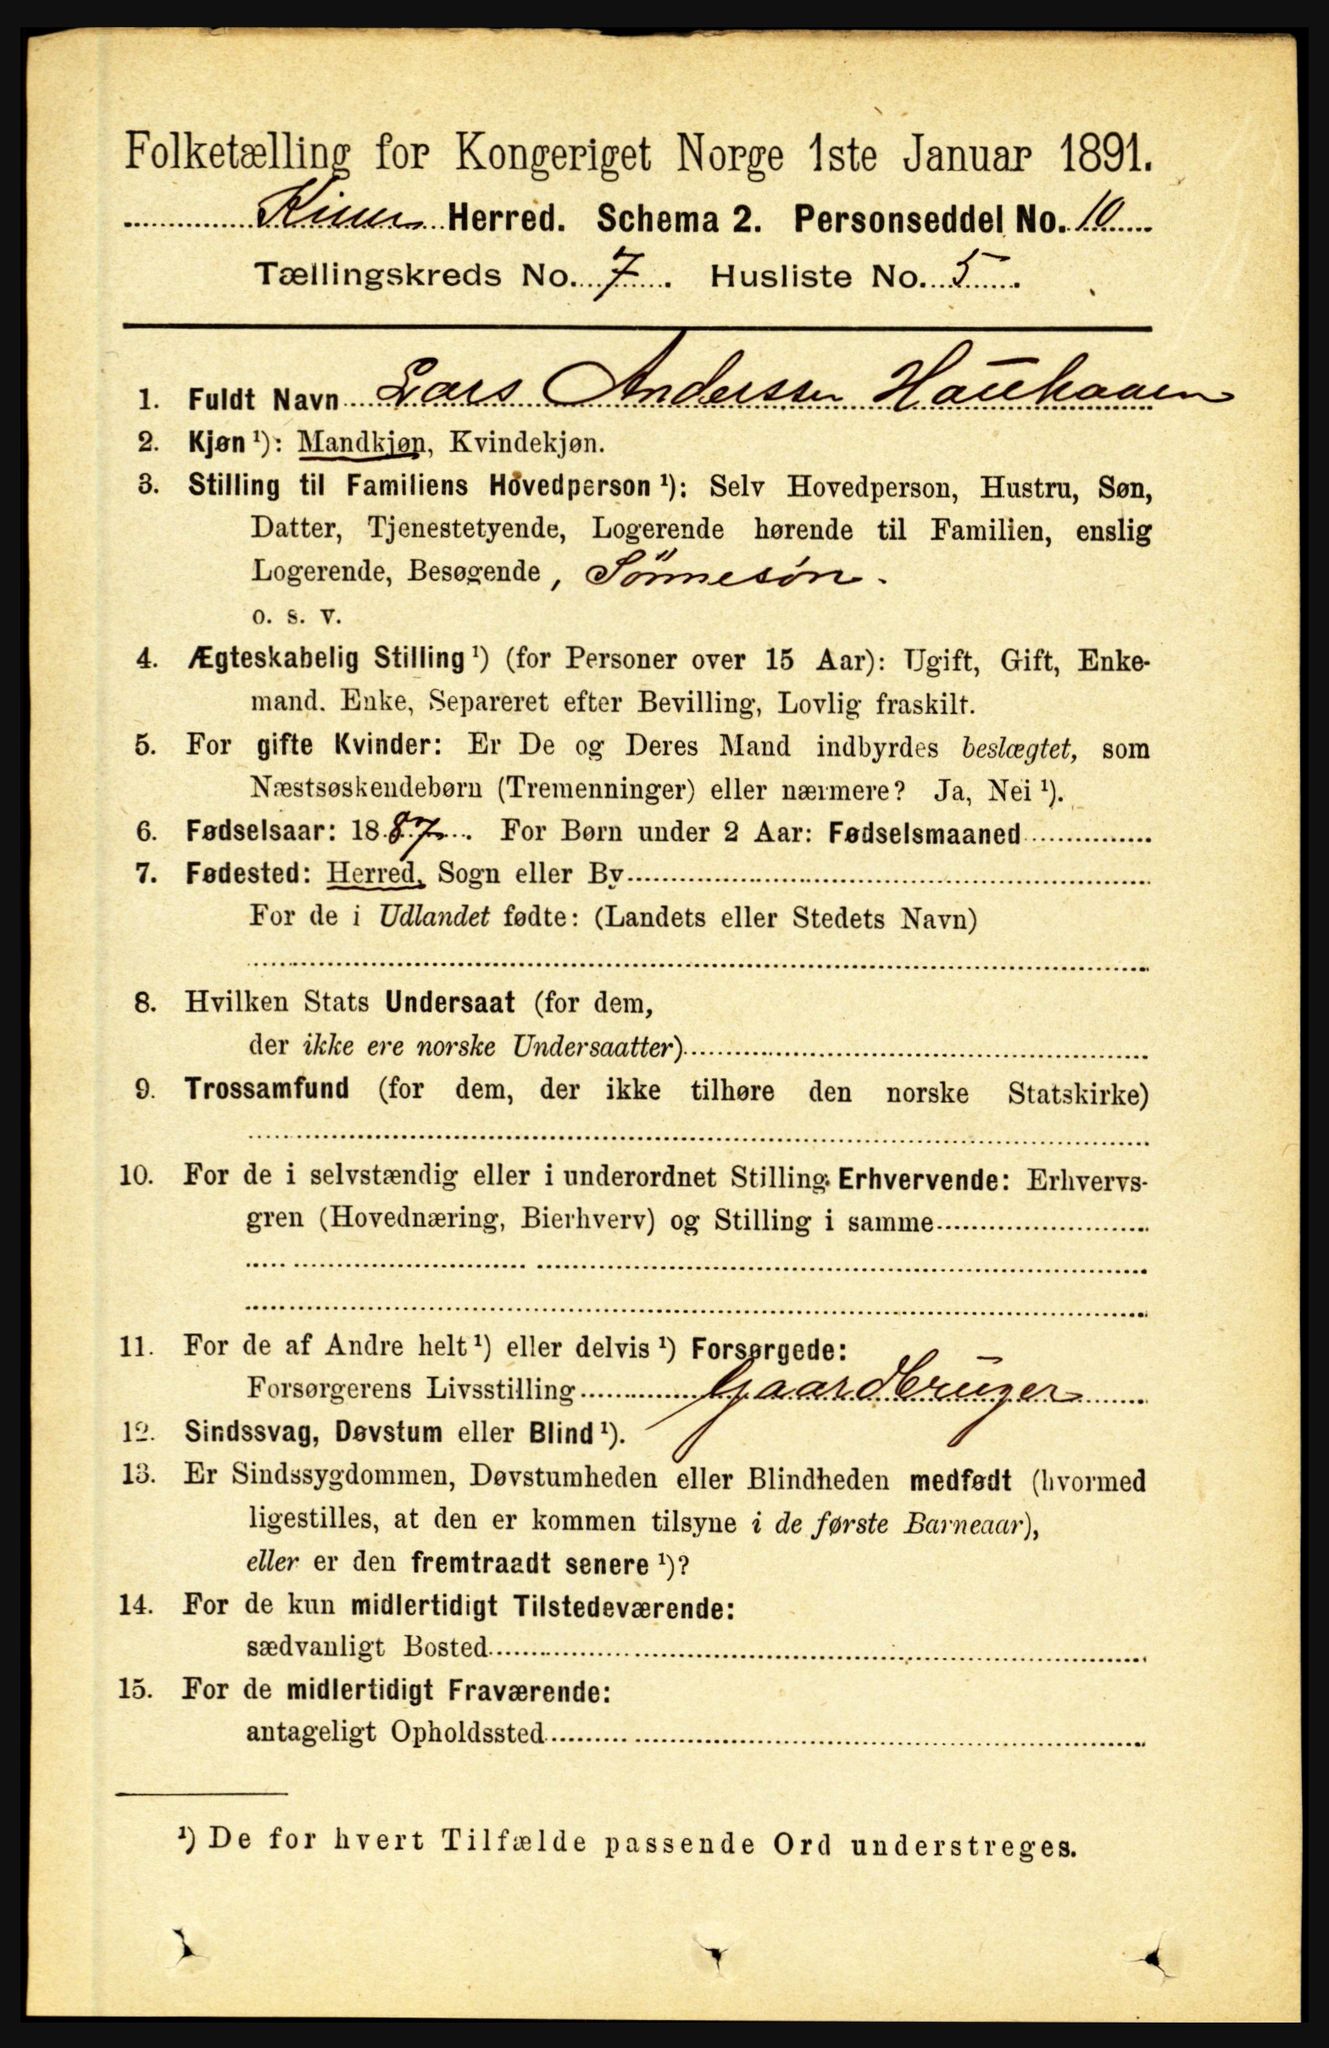 Folketælling for Kongeriget Norge 1ste Januar 1891.
Kinn Herred. Schema 2. Personseddel No. 10
Tællingskreds No. 7. Husliste No. 5.
1. Fuldt Navn Lars Anderssen Hauhaaen
2. Kjøn ¹): Mandkjøn, Kvindekjøn.
3. Stilling til Familiens Hovedperson ¹): Selv Hovedperson, Hustru, Søn,
Datter, Tjenestetyende, Logerende hørende til Familien, enslig
Logerende, Besøgende, Sönnesön.
o. s. v.
4. Ægteskabelig Stilling ¹) (for Personer over 15 Aar): Ugift, Gift, Enke-
mand. Enke, Separeret efter Bevilling, Lovlig fraskilt.
5. For gifte Kvinder: Er De og Deres Mand indbyrdes beslægtet, som
Næstsøskendebørn (Tremenninger) eller nærmere? Ja, Nei ¹).
6. Fødselsaar: 1887. For Børn under 2 Aar: Fødselsmaaned
7. Fødested: Herred, Sogn eller By
For de i Udlandet fødte: (Landets eller Stedets Navn)
8. Hvilken Stats Undersaat (for dem,
der ikke ere norske Undersaatter)
9. Trossamfund (for dem, der ikke tilhøre den norske Statskirke)
10. For de i selvstændig eller i underordnet Stilling Erhvervende: Erhvervs-
gren (Hovednæring, Bierhverv) og Stilling i samme
11. For de af Andre helt ¹) eller delvis ¹) Forsørgede:
Forsørgerens Livsstilling Gaardbruger
12. Sindssvag, Døvstum eller Blind ¹).
13. Er Sindssygdommen, Døvstumheden eller Blindheden medfødt (hvormed
ligestilles, at den er kommen tilsyne i de første Barneaar),
eller er den fremtraadt senere ¹)?
14. For de kun midlertidigt Tilstedeværende:
sædvanligt Bosted
15. For de midlertidigt Fraværende:
antageligt Opholdssted
¹) De for hvert Tilfælde passende Ord understreges.